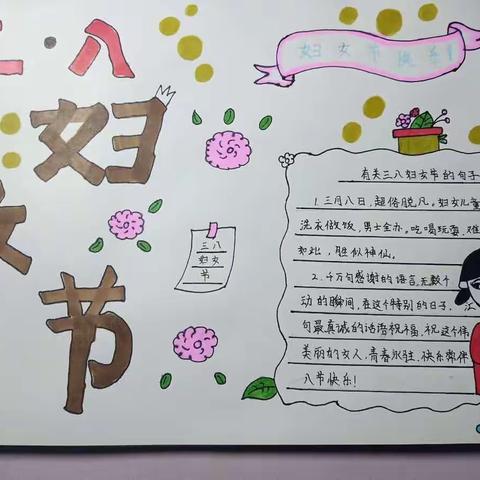 三·八
妇
女
节
妇女节快乐!
三八
妇女
节
有关三八妇女节的句子
1.三月八日,超俗脱凡。妇女儿童
洗衣做饭,男士全办。吃喝玩耍,难
如此,胜似神仙。
2.千万句感谢的语言,无数个
动的瞬间,在这个特别的日子,汇
句最真诚的话语祝福,祝这个伟
美丽的女人,青春永驻,快乐常伴
八节快乐!